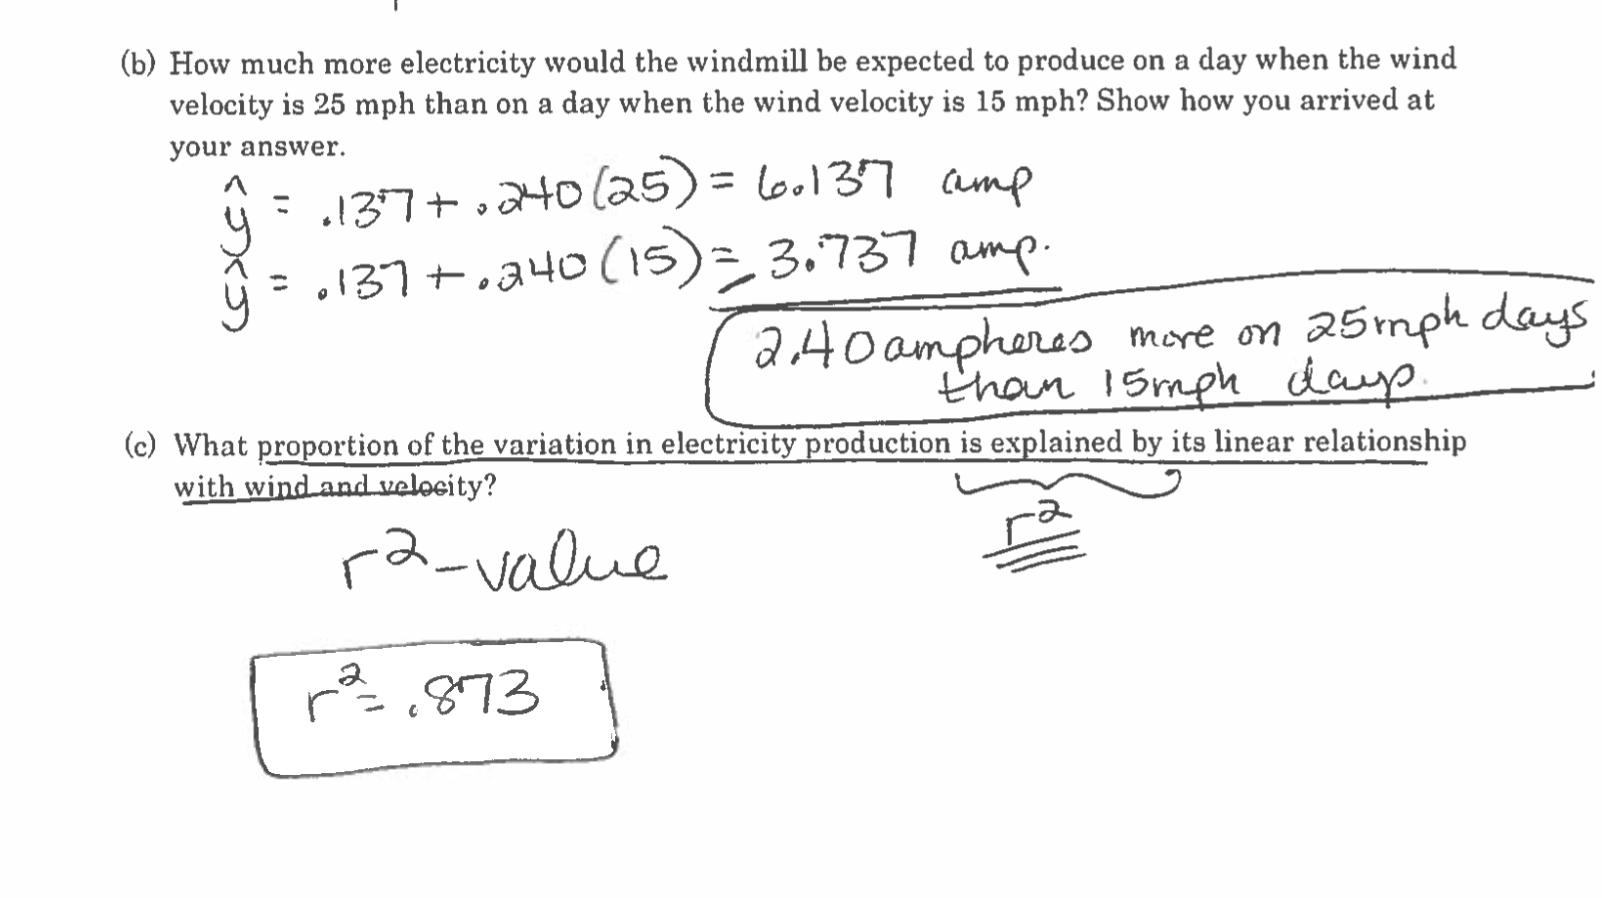 (b) How much more electricity would the windmill be expected to produce on a day when the wind
velocity is 25 mph than on a day when the wind velocity is 15 mph? Show how you arrived at
your answer.
ŷ = .137 + .240(25) = 6.137 amp
ŷ = .137 + .240(15) = 3.737 amp.
2.40 ampheres more on 25mph days
than 15mph days.
(c) What proportion of the variation in electricity production is explained by its linear relationship
with wind and velocity?
r²
r²-value
r² = .873